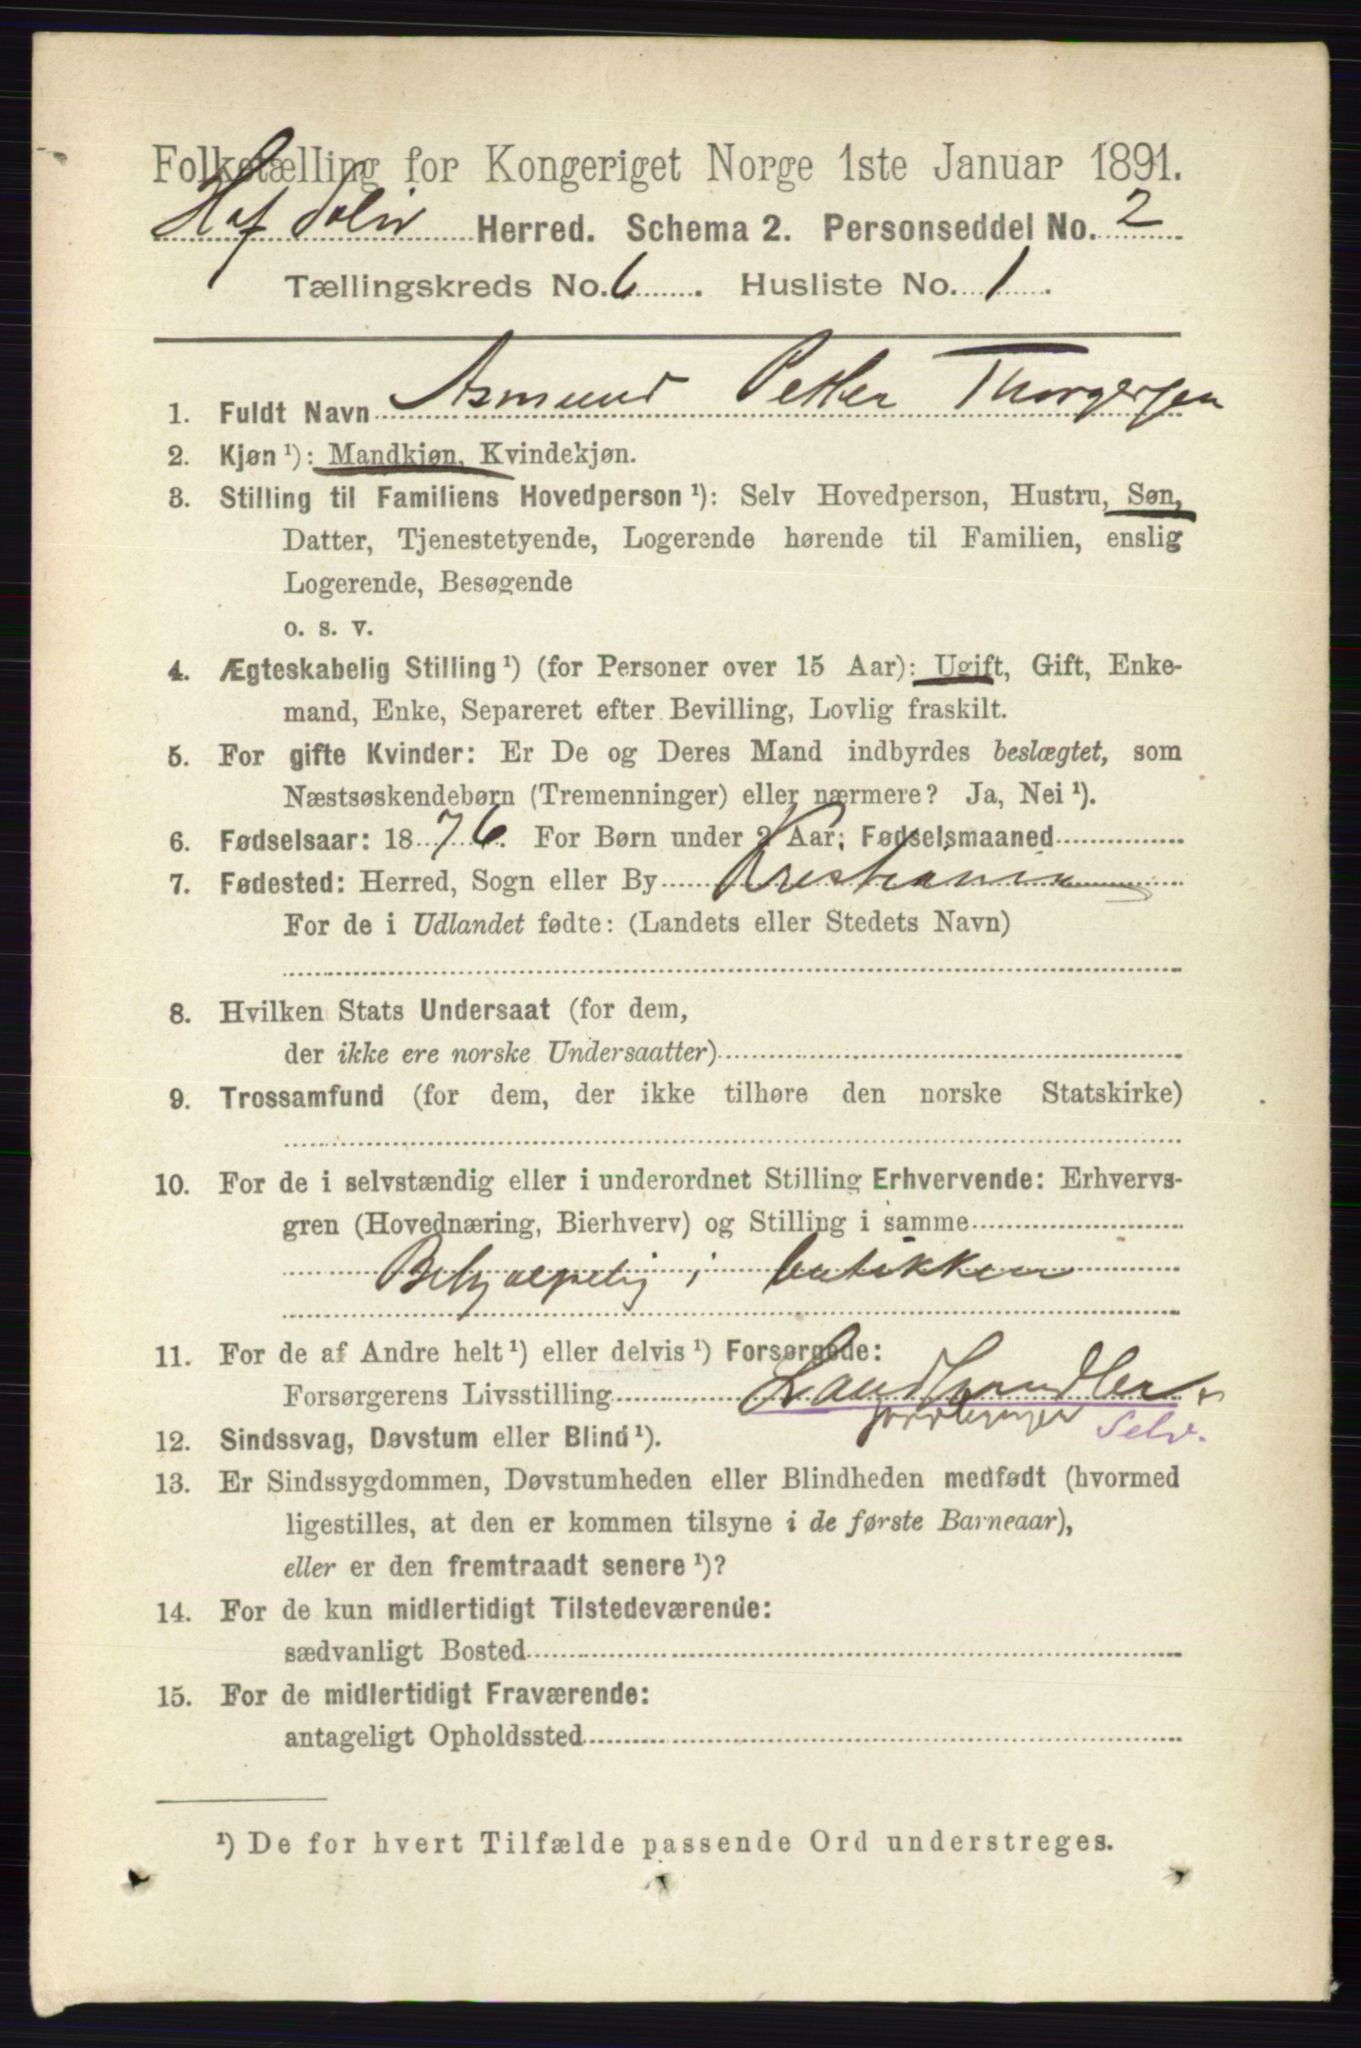 Folketælling for Kongeriget Norge 1ste Januar 1891.
Hof Solør Herred. Schema 2. Personseddel No. 2
Tællingskreds No. 6. Husliste No. 1.
1. Fuldt Navn Asmund Petter Thorgersen
2. Kjøn ¹): Mandkjøn, Kvindekjøn.
3. Stilling til Familiens Hovedperson ¹): Selv Hovedperson, Hustru, Søn,
Datter, Tjenestetyende, Logerende hørende til Familien, enslig
Logerende, Besøgende
o. s. v.
4. Ægteskabelig Stilling ¹) (for Personer over 15 Aar): Ugift, Gift, Enke-
mand, Enke, Separeret efter Bevilling, Lovlig fraskilt.
5. For gifte Kvinder: Er De og Deres Mand indbyrdes beslægtet, som
Næstsøskendebørn (Tremenninger) eller nærmere? Ja, Nei ¹).
6. Fødselsaar: 1876. For Børn under 2 Aar: Fødselsmaaned
7. Fødested: Herred, Sogn eller By Kristiania
For de i Udlandet fødte: (Landets eller Stedets Navn)
8. Hvilken Stats Undersaat (for dem,
der ikke ere norske Undersaatter)
9. Trossamfund (for dem, der ikke tilhøre den norske Statskirke)
10. For de i selvstændig eller i underordnet Stilling Erhvervende: Erhvervs-
gren (Hovednæring, Bierhverv) og Stilling i samme
Behjælpelig i butikken
11. For de af Andre helt ¹) eller delvis ¹) Forsørgede:
Forsørgerens Livsstilling Landhandler
Selv.
12. Sindssvag, Døvstum eller Blind ¹).
13. Er Sindssygdommen, Døvstumheden eller Blindheden medfødt (hvormed
ligestilles, at den er kommen tilsyne i de første Barneaar),
eller er den fremtraadt senere ¹)?
14. For de kun midlertidigt Tilstedeværende:
sædvanligt Bosted
15. For de midlertidigt Fraværende:
antageligt Opholdssted
¹) De for hvert Tilfælde passende Ord understreges.